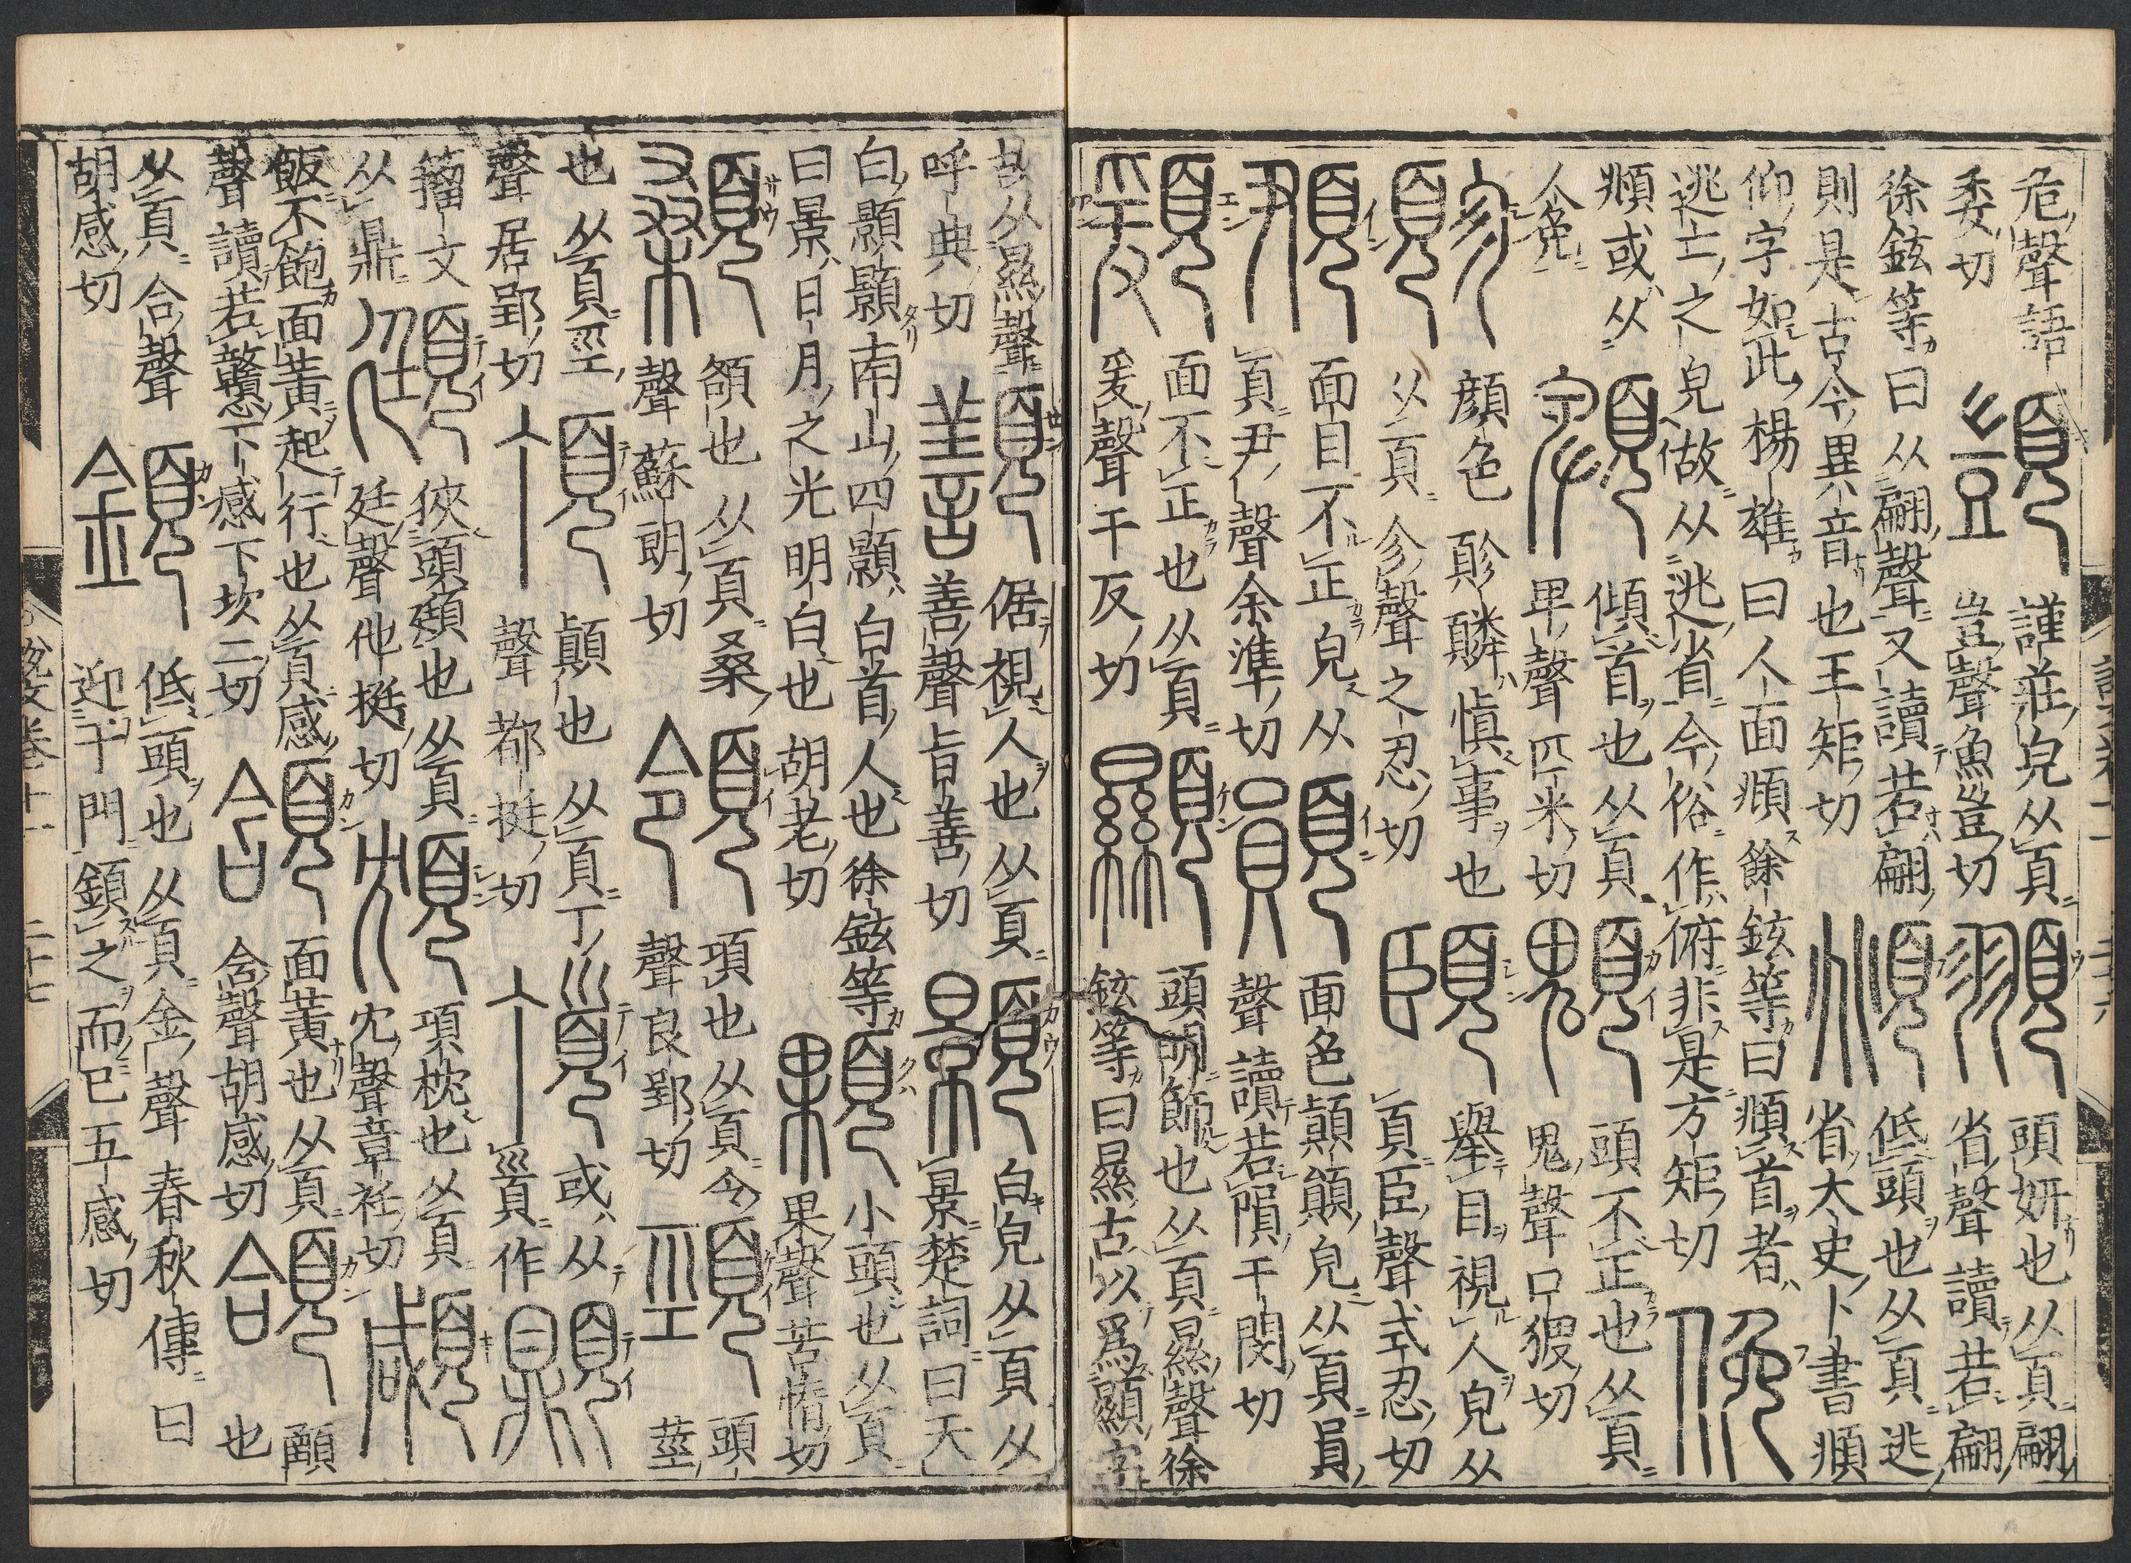 危聲語顗謹莊皃从頁頭妍也从頁翩
委切豈聲魚豈切省聲讀若翩
徐鉉等曰从翩聲又讀若翩頫低頭也从頁逃
則是古今異音也王矩切省太史卜書頫
仰字如此楊雄曰人面頫餘鉉等曰頫首者俛
逃亡之皃故从逃省今俗作俯非是方矩切
頫或从傾首也从頁頭不正也从頁
人免卑聲匹米切鬼聲口猥切
顏色慎事也舉目視人皃从
从頁㐱聲之忍切頁臣聲式忍切
面目不正皃从面色顚皃从頁員
頁尹聲余準切聲讀若隕于閔切
面不正也从頁顯頭明飾也从頁㬎聲徐
爰聲于反切鉉等曰㬎古以爲顯字
故从㬎聲倨視人也从頁顥白皃从頁从
呼典切善聲旨善切景楚詞曰天
白顥顥南山四顥白首人也徐鉉等顆小頭也从頁
曰景日月之光明白也胡老切果聲苦惰切
顙頟也从頁桑領項也从頁令頸頭
聲蘇朗切聲良郢切莖
也从頁巠頂顚也从頁丁或从
聲居郢切聲都挺切作
籀文頲狹頭頲也从頁項枕也从頁顑
从鼎廷聲他挺切冘聲章衽切
飯不飽面黃起行也从頁感頷面黃也从頁顄頤
聲讀若戇下感下坎二切含聲胡感切也
从頁合聲顉低頭也从頁金聲春秋傳曰
胡感切迎于門顉之而已五感切